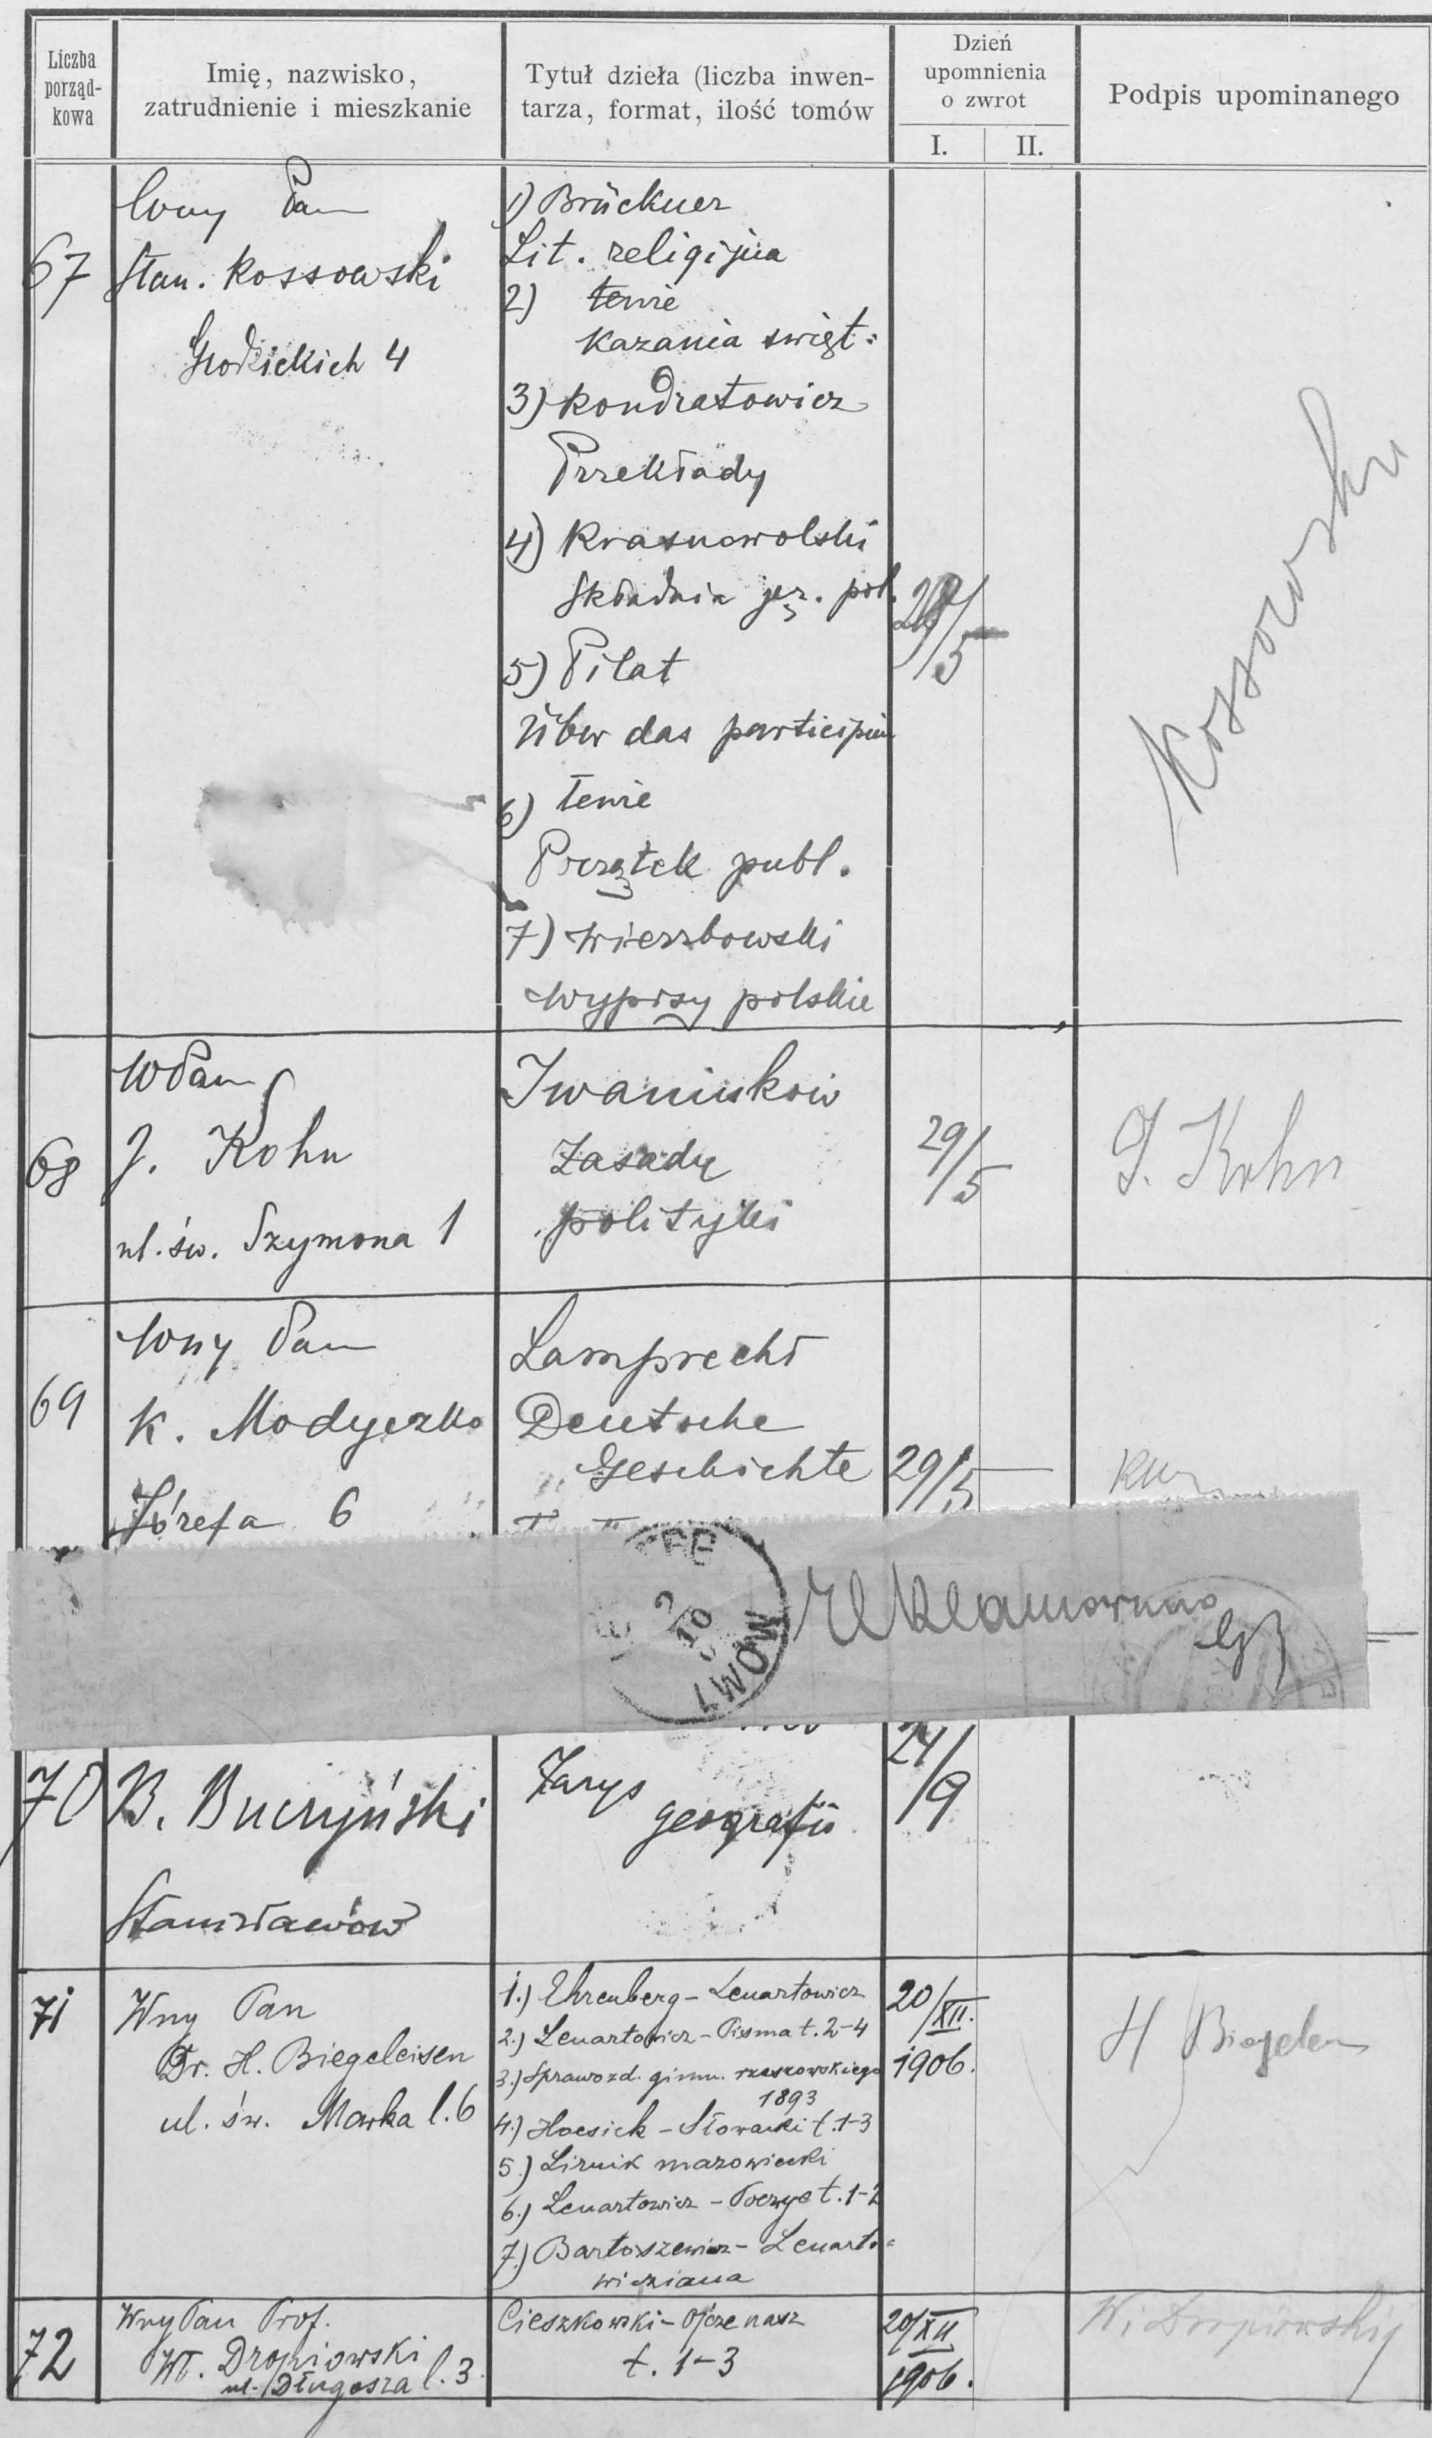 Liczba
porząd-
kowa
Imię, nazwisko,
zatrudnienie i mieszkanie
Tytuł dzieła (liczba inwen-
tarza, format, ilość tomów
Dzień
upomnienia
o zwrot
I.
II.
Podpis upominanego
67
Wny Pan
Stan. Kossowski
4
1) Brückner
Lit. religijna
2) tenże
Kazania święt:
3) Kondratowicz
Przekłady
4) Krasnowolski
Składnia jęz. pol.
5) Pilat
Über das participium
6) tenże
Początek publ.
7) Wierzbowski
Wypisy polskie
/5
Kossowski
68
WPan
J. Kohn
ul. św. Szymona 1
Iwaniukow
Zasady
polityki
29/5
J. Kohn
69
Wny Pan
K. Modyczko
Józefa 6
Lamprecht
Deutsche
Geschichte
29/5
LWÓW
Reklamowano
70
B. Buczyński
Stanisławów
Zarys
geografii
24/9
71
Wny Pan
Dr. H. Biegeleisen
ul. św. Marka l. 6
1.) Ehrenberg - Lenartowicz
2.) Lenartowicz - Pisma t. 2-4
3.) Sprawozd. gimn. rzeszowskiego
1893
4.) Hoesick - Słowacki t. 1-3
5.) Lirnik mazowiecki
6.) Lenartowicz - Poezye t. 1-2
7.) Bartoszewicz - Lenarto=
wicziana
20/XII.
1906.
H Biegelen
72
Wny Pan Prof.
Wł. Dropiowski
ul. Długosza l. 3.
Cieszkowski - Ojcze nasz
t. 1-3
20/XII
1906.
W. Dropiowski